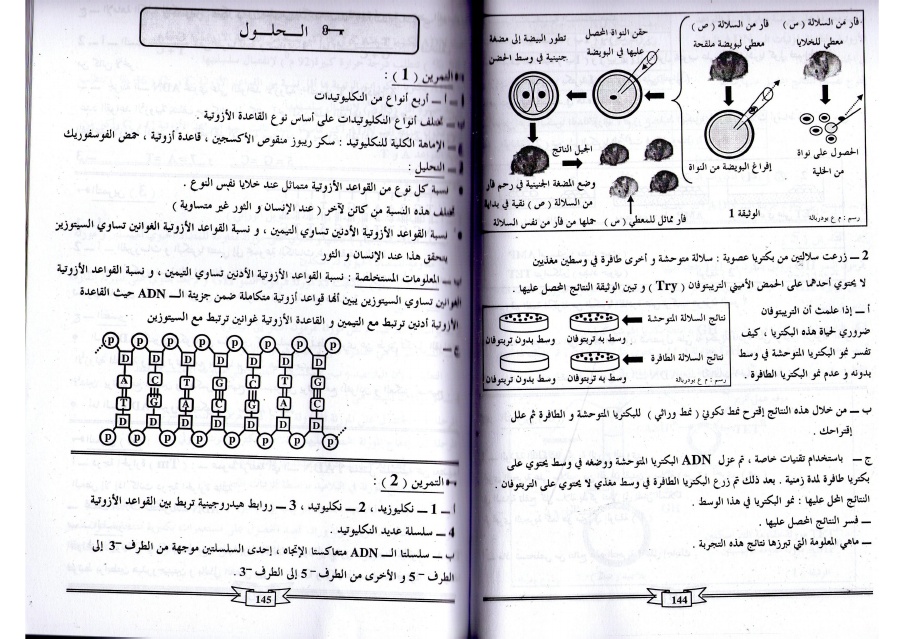 فأر من السلالة ( س )
معطي للخلايا
فأر من السلالة ( ص )
معطي لبويضة ملقحة
حقن النواة المحصل
عليها في البويضة
تطور البيضة إلى مضغة
جنينية في وسط الحضن
الحصول على نواة
من الخلية
إفراغ البويضة من النواة
الجيل الناتج
وضع المضغة الجنينية في رحم فأر
من السلالة ( ص ) نقية في بداية
حملها من فأر من نفس السلالة
فأر مماثل للمعطي ( س )
الوثيقة 1
رسم : م ع بودربالة
2 ــ زرعت سلالتين من بكتريا عصوية : سلالة متوحشة و أخرى طافرة في وسطين مغذيين
لا يحتوي أحدهما على الحمض الأميني التريبتوفان ( Try ) و تبين الوثيقة النتائج المحصل عليها .
أ ــ إذا علمت أن التريبتوفان
ضروري لحياة هذه البكتريا ، كيف
تفسر نمو البكتريا المتوحشة في وسط
بدونه و عدم نمو البكتريا الطافرة .
نتائج السلالة المتوحشة
وسط به تربتوفان
وسط بدون تربتوفان
نتائج السلالة الطافرة
وسط به تربتوفان
وسط بدون تربتوفان
رسم : م ع بودربالة
ب ــ من خلال هذه النتائج إقترح نمط تكويني ( نمط وراثي ) للبكتريا المتوحشة و الطافرة ثم علل
إقتراحك .
ج ــ باستخدام تقنيات خاصة ، تم عزل ADN البكتريا المتوحشة ووضعه في وسط يحتوي على
بكتريا طافرة لمدة زمنية . بعد ذلك تم زرع البكتريا الطافرة في وسط مغذي لا يحتوي على التربتوفان .
النتائج المحل عليها : نمو البكتريا في هذا الوسط .
ــ فسر النتائج المحصل عليها .
ــ ماهي المعلومة التي تبرزها نتائج هذه التجربة .
144
الـحلـول
التمرين ( 1 ) :
أ ــ أربع أنواع من النكليوتيدات
تختلف أنواع النكليوتيدات على أساس نوع القاعدة الأزوتية .
الإماهة الكلية للنكليوتيد : سكر ريبوز منقوص الأكسجين ، قاعدة أزوتية ، حمض الفوسفوريك
التحليل :
نسبة كل نوع من القواعد الأزوتية متماثل عند خلايا نفس النوع .
تختلف هذه النسبة من كائن لآخر ( عند الإنسان و الثور غير متساوية )
نسبة القواعد الأزوتية الأدنين تساوي التيمين ، و نسبة القواعد الأزوتية الغوانين تساوي السيتوزين
يتحقق هذا عند الإنسان و الثور
ب ــ المعلومات المستخلصة : نسبة القواعد الأزوتية الأدنين تساوي التيمين ، و نسبة القواعد الأزوتية
الغوانين تساوي السيتوزين يبين أنها قواعد أزوتية متكاملة ضمن جزيئة الــ ADN حيث القاعدة
الأزوتية أدنين ترتبط مع التيمين و القاعدة الأزوتية غوانين ترتبط مع السيتوزين
ج ــ
P P P P P P P
D D D D D D D
A C T G C T G
T G A C G A C
D D D D D D D
P P P P P P P
التمرين ( 2 ) :
أ ــ 1 ــ نكليوزيد ، 2 ــ نكليوتيد ، 3 ــ روابط هيدروجينية تربط بين القواعد الأزوتية
4 ــ سلسلة عديد النكليوتيد .
ب ــ سلسلتا الــ ADN متعاكستا الإتجاه ، إحدى السلسلتين موجهة من الطرف َ3 إلى
الطرف َ5 و الأخرى من الطرف َ5 إلى الطرف َ3 .
145